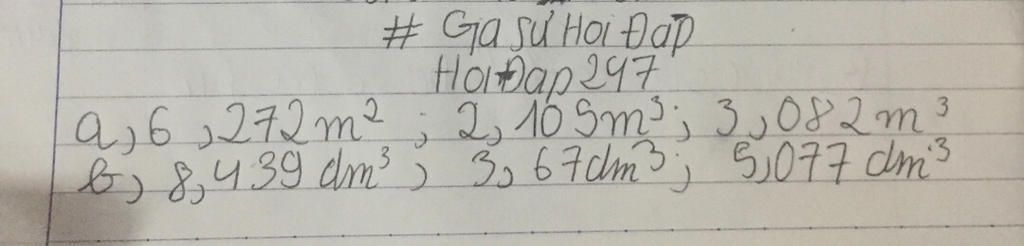 # Gia sư Hoi Đap
Hoi Đap 247
a, 6,272m² ; 2,105m³; 3,082m³
b, 8,439 dm³; 3,67dm³; 5,077 dm³